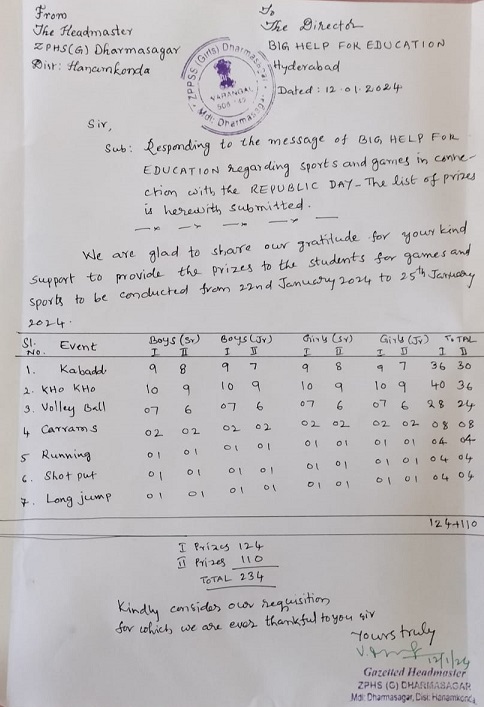 From
The Headmaster
ZPHS(G) Dharmasagar
Dist: Hanamkonda
To
The Director
BIG HELP FOR EDUCATION
Hyderabad
Dated: 12.01.2024
ZPPSS (Girls) Dharmasagar
WARANGAL
Mdl: Dharmasagar
Sir,
Sub: Responding to the message of BIG HELP FOR
EDUCATION regarding sports and games in conne-
ction with the REPUBLIC DAY - The list of prizes
is herewith submitted.
We are glad to share our gratitude for your kind
support to provide the prizes to the students for games and
sports to be conducted from 22nd January 2024 to 25th January
2024.
Sl. No. Event Boys (Sr) Boys (Jr) Girls (Sr) Girls (Jr) TOTAL
I II I II I II I II I II
1. Kabadd 9 8 9 7 9 8 9 7 36 30
2. KHO KHO 10 9 10 9 10 9 10 9 40 36
3. Volley Ball 07 6 07 6 07 6 07 6 28 24
4 Carrams 02 02 02 02 02 02 02 02 08 08
5 Running 01 01 01 01 01 01 01 01 04 04
6. Shot put 01 01 01 01 01 01 01 01 04 04
7. Long jump 01 01 01 01 01 01 01 01 04 04
124+110
I Prizes 124
II Prizes 110
TOTAL 234
Kindly consider our requisition
for which we are ever thankful to you sir
Yours truly
12/1/24
Gazetted Headmaster
ZPHS (G) DHARMASAGAR
Mdl: Dharmasagar, Dist: Hanamkonda